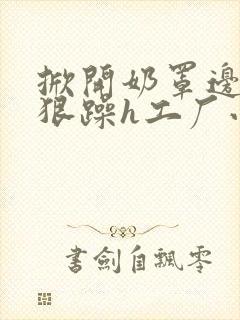 掀開奶罩邊
狠躁h工厂
書劍自飄零